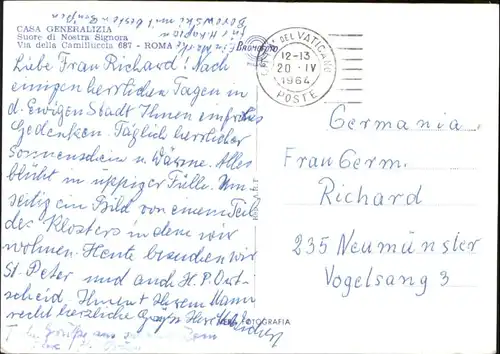 CASA GENERALIZIA
Suore di Nostra Signora
Via della Camilluccia 687 - ROMA
mit besten Grüßen
Liebe Frau Richard! Nach
einigen herrlichen Tagen in
d. Ewigen Stadt Ihnen ein frohes
Gedenken. Täglich herrlicher
Sonnenschein u. Wärme. Alles
blüht in üppiger Fülle. Um
seitig ein Bild von einem Teil
des Klosters in dem wir
wohnen. Heute besuchen wir
St. Peter und auch H. P. Ort-
scheid, Ihnen u. Ihrem Mann
recht herzliche Grüße
DEL VATICANO
12-13
20 · IV
1964
POSTE
Germania
Frau Germ.
Richard
235 Neumünster
Vogelsang 3
FOTOGRAFIA